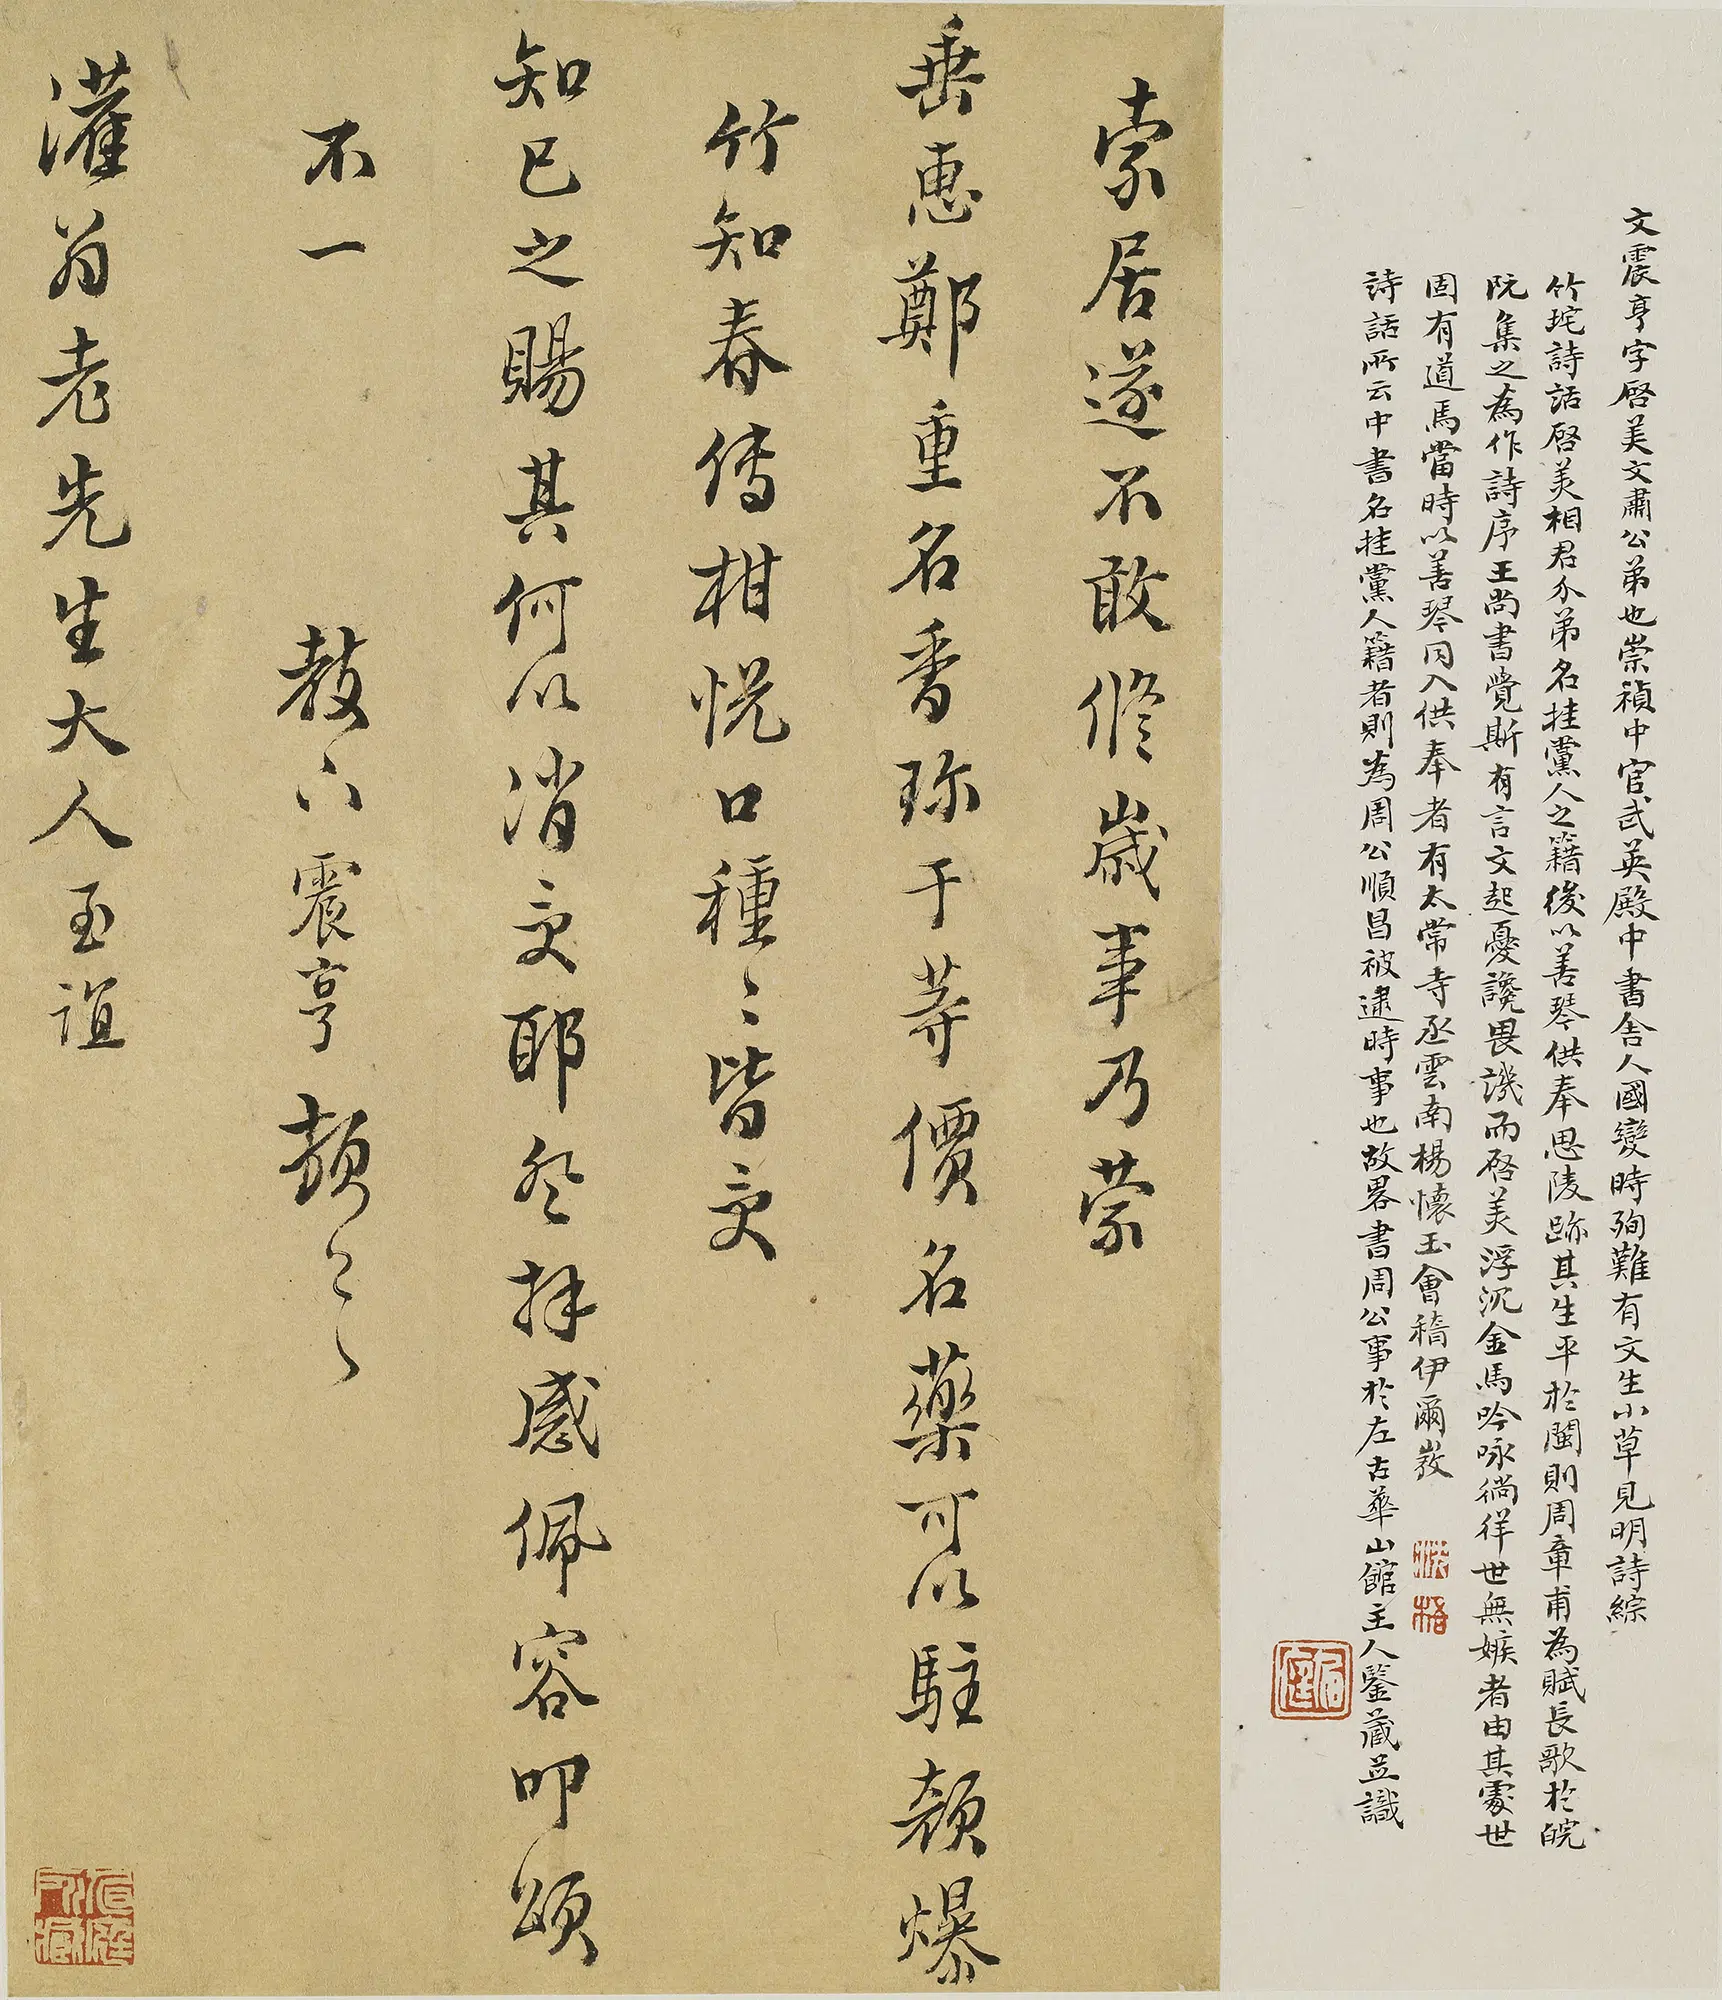 文震亨字啓美文肅公弟也崇禎中官武英殿中書舍人國變時殉難有文生小草見明詩綜
竹垞詩話啓美相君介弟名挂黨人之籍後以善琴供奉思陵跡其生平於閩則周章甫為賦長歌於皖
阮集之為作詩序王尚書覺斯有言文起憂讒畏譏而啓美浮沉金馬吟咏徜徉世無嫉者由其處世
固有道焉當時以善琴同入供奉者有太常寺丞雲南楊懷玉會稽伊爾敎
詩話所云中書名挂黨人籍者則為周公順昌被逮時事也故畧書周公事於左古華山館主人鑒藏並識
索居遂不敢修歲事乃蒙
垂惠鄭重名香珎于等價名藥可以駐顏爆
竹知春傳柑悅口種〻皆受
知已之賜其何以消受耶登拜感佩容叩頌
不一
教下震亨頓〻
灌翁老先生大人至誼